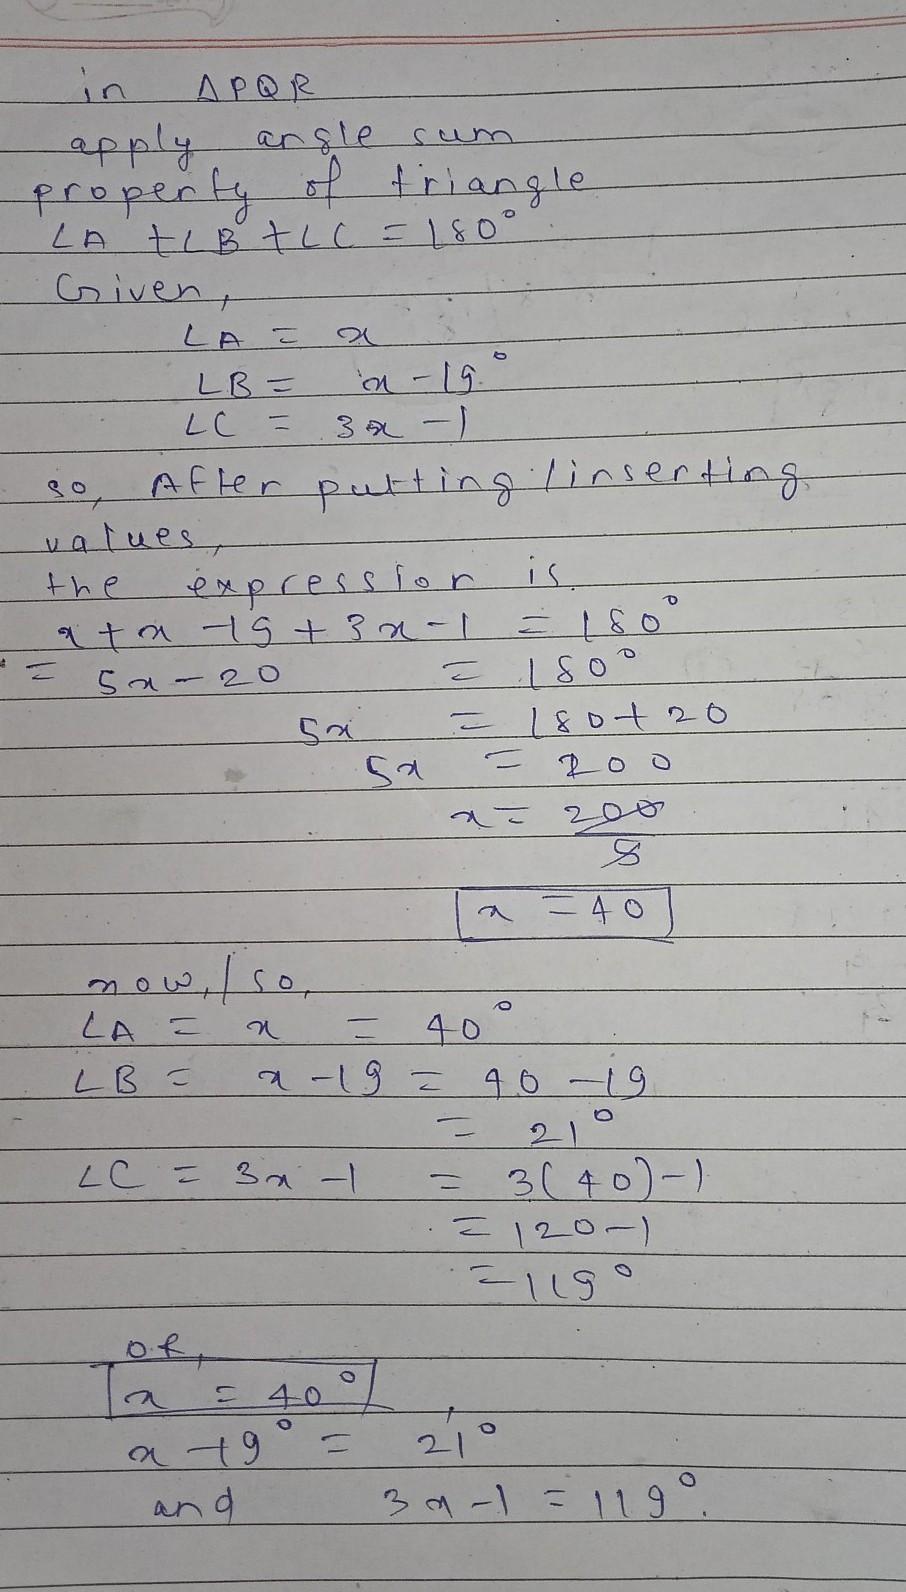 in △PQR
apply angle sum
property of triangle
∠A + ∠B + ∠C = 180°
Given,
∠A = x
∠B = x - 19°
∠C = 3x - 1
so, After putting/inserting
values,
the expression is
x + x - 19 + 3x - 1 = 180°
= 5x - 20 = 180°
5x = 180 + 20
5x = 200
x = 200
5
x = 40
now,/so,
∠A = x = 40°
∠B = x - 19 = 40 - 19
= 21°
∠C = 3x - 1 = 3(40) - 1
= 120 - 1
= 119°
OR,
x = 40°
x - 19° = 21°
and 3x - 1 = 119°.